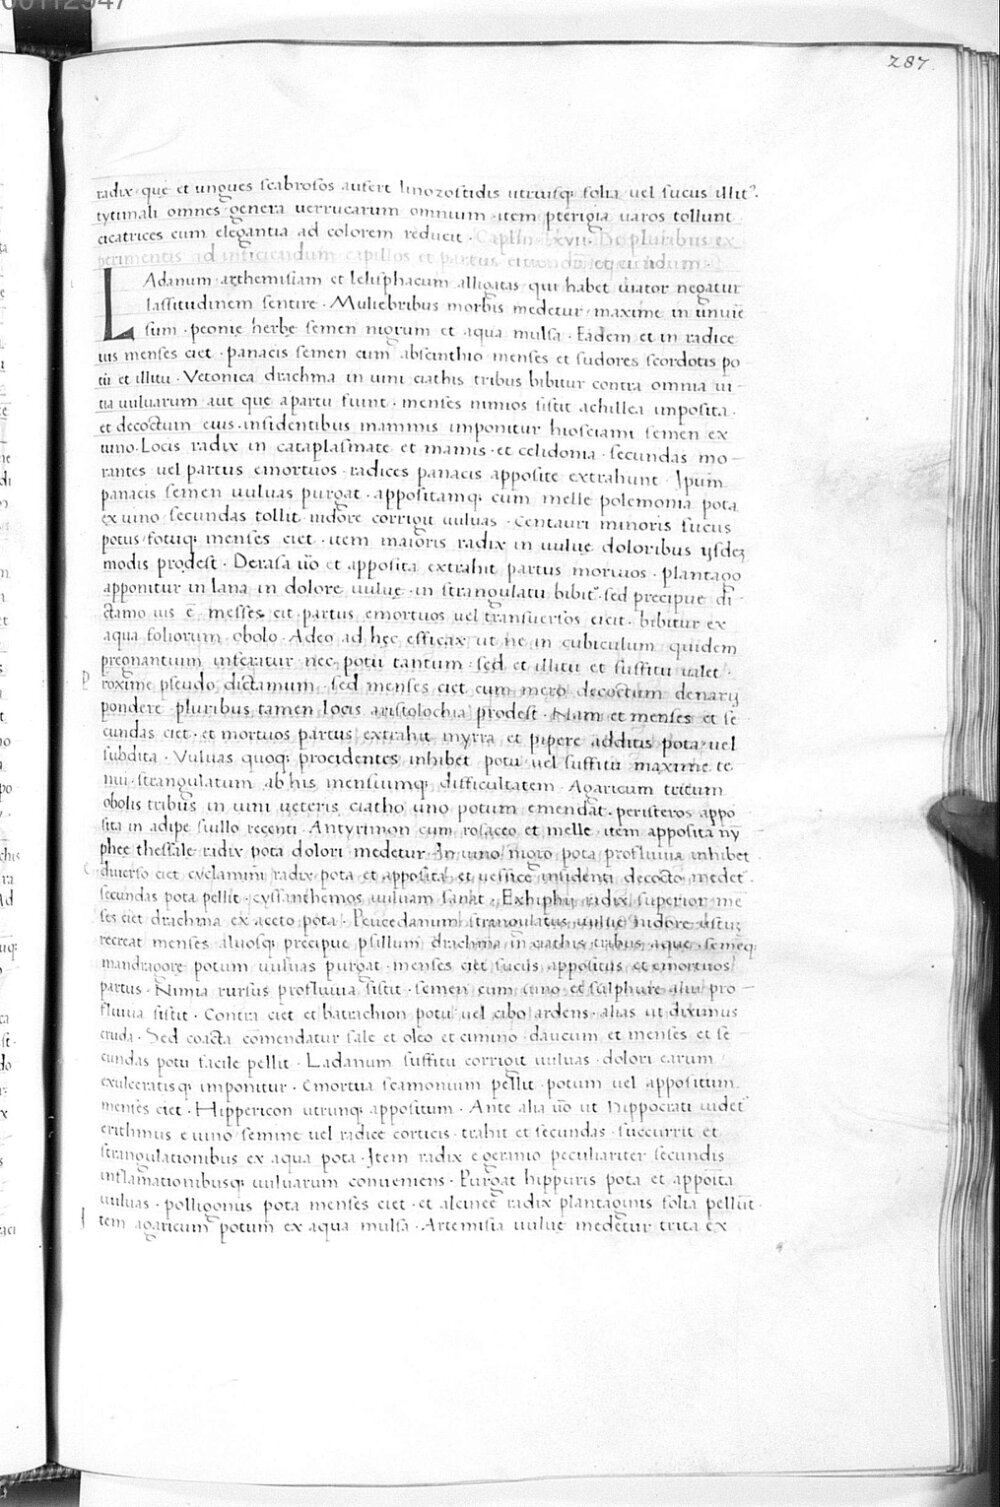 287.
radix · quę et ungues scabrosos aufert linozostidis utriusq; folia uel sucus illit'.
tytimali omnes genera uerrucarum omnium · item pterigia uaros tollunt
cicatrices cum elegantia ad colorem reducit · Caplm · lxvii · De pluribus ex
perimentis ad inficiendum capillos et partus
LAdanum · arthemisiam et lelisphacum alligatas qui habet uiator negatur
lassitudinem sentire · Muliebribus morbis medetur · maxime in uniuē
sum · peonię herbę semen nigrum et aqua mulsa · Eadem et in radice
uis menses ciet · panacis semen cum absinthio menses et sudores scordotis po
tu et illitu · Vetonica drachma in uini ciathis tribus bibitur contra omnia ui
tia uuluarum aut quę apartu fiunt · menses nimios sistit achillea imposita ·
et decoctum eius · insidentibus mammis imponitur hiosciami semen ex
uino · Locis radix in cataplasmate et mamis · et celidonia · secundas mo
rantes uel partus emortuos · radices panacis apposite extrahunt · Ipum̄
panacis semen uuluas purgat · appositamq; cum melle polemonia pota
ex uino secundas tollit nidore corrigit uuluas · Centauri minoris sucus
potus fotuq; menses ciet · item maioris radix in uuluę doloribus ijsdeȝ
modis prodest · Derasa u͞o et apposita extrahit partus mortuos · plantago
apponitur in lana in dolore uuluę · in strangulatu bibit'. sed precipue di
ctamo uis ē messes cit · partus emortuos uel transuersos eicit · bibitur ex
aqua foliorum obolo · Adeo ad hęc efficax ut ne in cubiculum quidem
pregnantium inferatur nec potu tantum · sed et illitu et suffitu ualet ·
P roxime pseudo dictamum · sed menses ciet cum mero decoctum denarij
pondere · pluribus tamen locis aristolochia prodest · Nam et menses et se
cundas ciet · et mortuos partus extrahit myrra et pipere additis pota uel
subdita · Vuluas quoq; procidentes inhibet potu uel suffitu maxime te
nui · strangulatum ab his mensiumq; difficultatem · Agaricum tritum
obolis tribus in uini ueteris ciatho uno potum emendat · peristeros appo
sita in adipe suillo recenti · Antyrimon cum rosaceo et melle · item apposita ny
phęe thessale radix pota dolori medetur · In uino nigro pota profluuia inhibet
diuerso ciet cyclamini radix pota et apposita et uessicę insidenti decocto medet'.
secundas pota pellit · cyssanthemos uuluam sanat · Exhiphij radix superior me
ses ciet drachma ex aceto pota · Peucedanum strangulatus uuluę nidore ustuȝ
recreat menses aluosq; precipue psillum drachma in ciathis tribus aquę · semēq;
mandragorę potum uuluas purgat · menses ciet sucus appositus et emortuos
partus · Nimia rursus profluuia sistit · semen cum uino et sulphure alui pro
fluuia sistit · Contra ciet et batrachion potu uel cibo ardens · alias ut diximus
cruda · Sed coacta com̄endatur sale et oleo et cimino · daucum et menses et se
cundas potu facile pellit · Ladanum suffitu corrigit uuluas · dolori earum
exulceratisq; imponitur · Emortua scamonium pellit · potum uel appositum
menses ciet · Hippericon utrunq; appositum · Ante alia u͞o ut hippocrati uidet'
crithmus e uino semine uel radice corticis · trahit et secundas · succurrit et
strangulationibus ex aqua pota · Item radix e geranio peculiariter secundis
inflamationibusq; uuluarum conueniens · Purgat hippuris pota et appōita
uuluas · polligonus pota menses ciet · et alcineę radix plantaginis folia pellūt
I tem agaricum potum ex aqua mulsa · Artemisia uuluę medetur trita ex